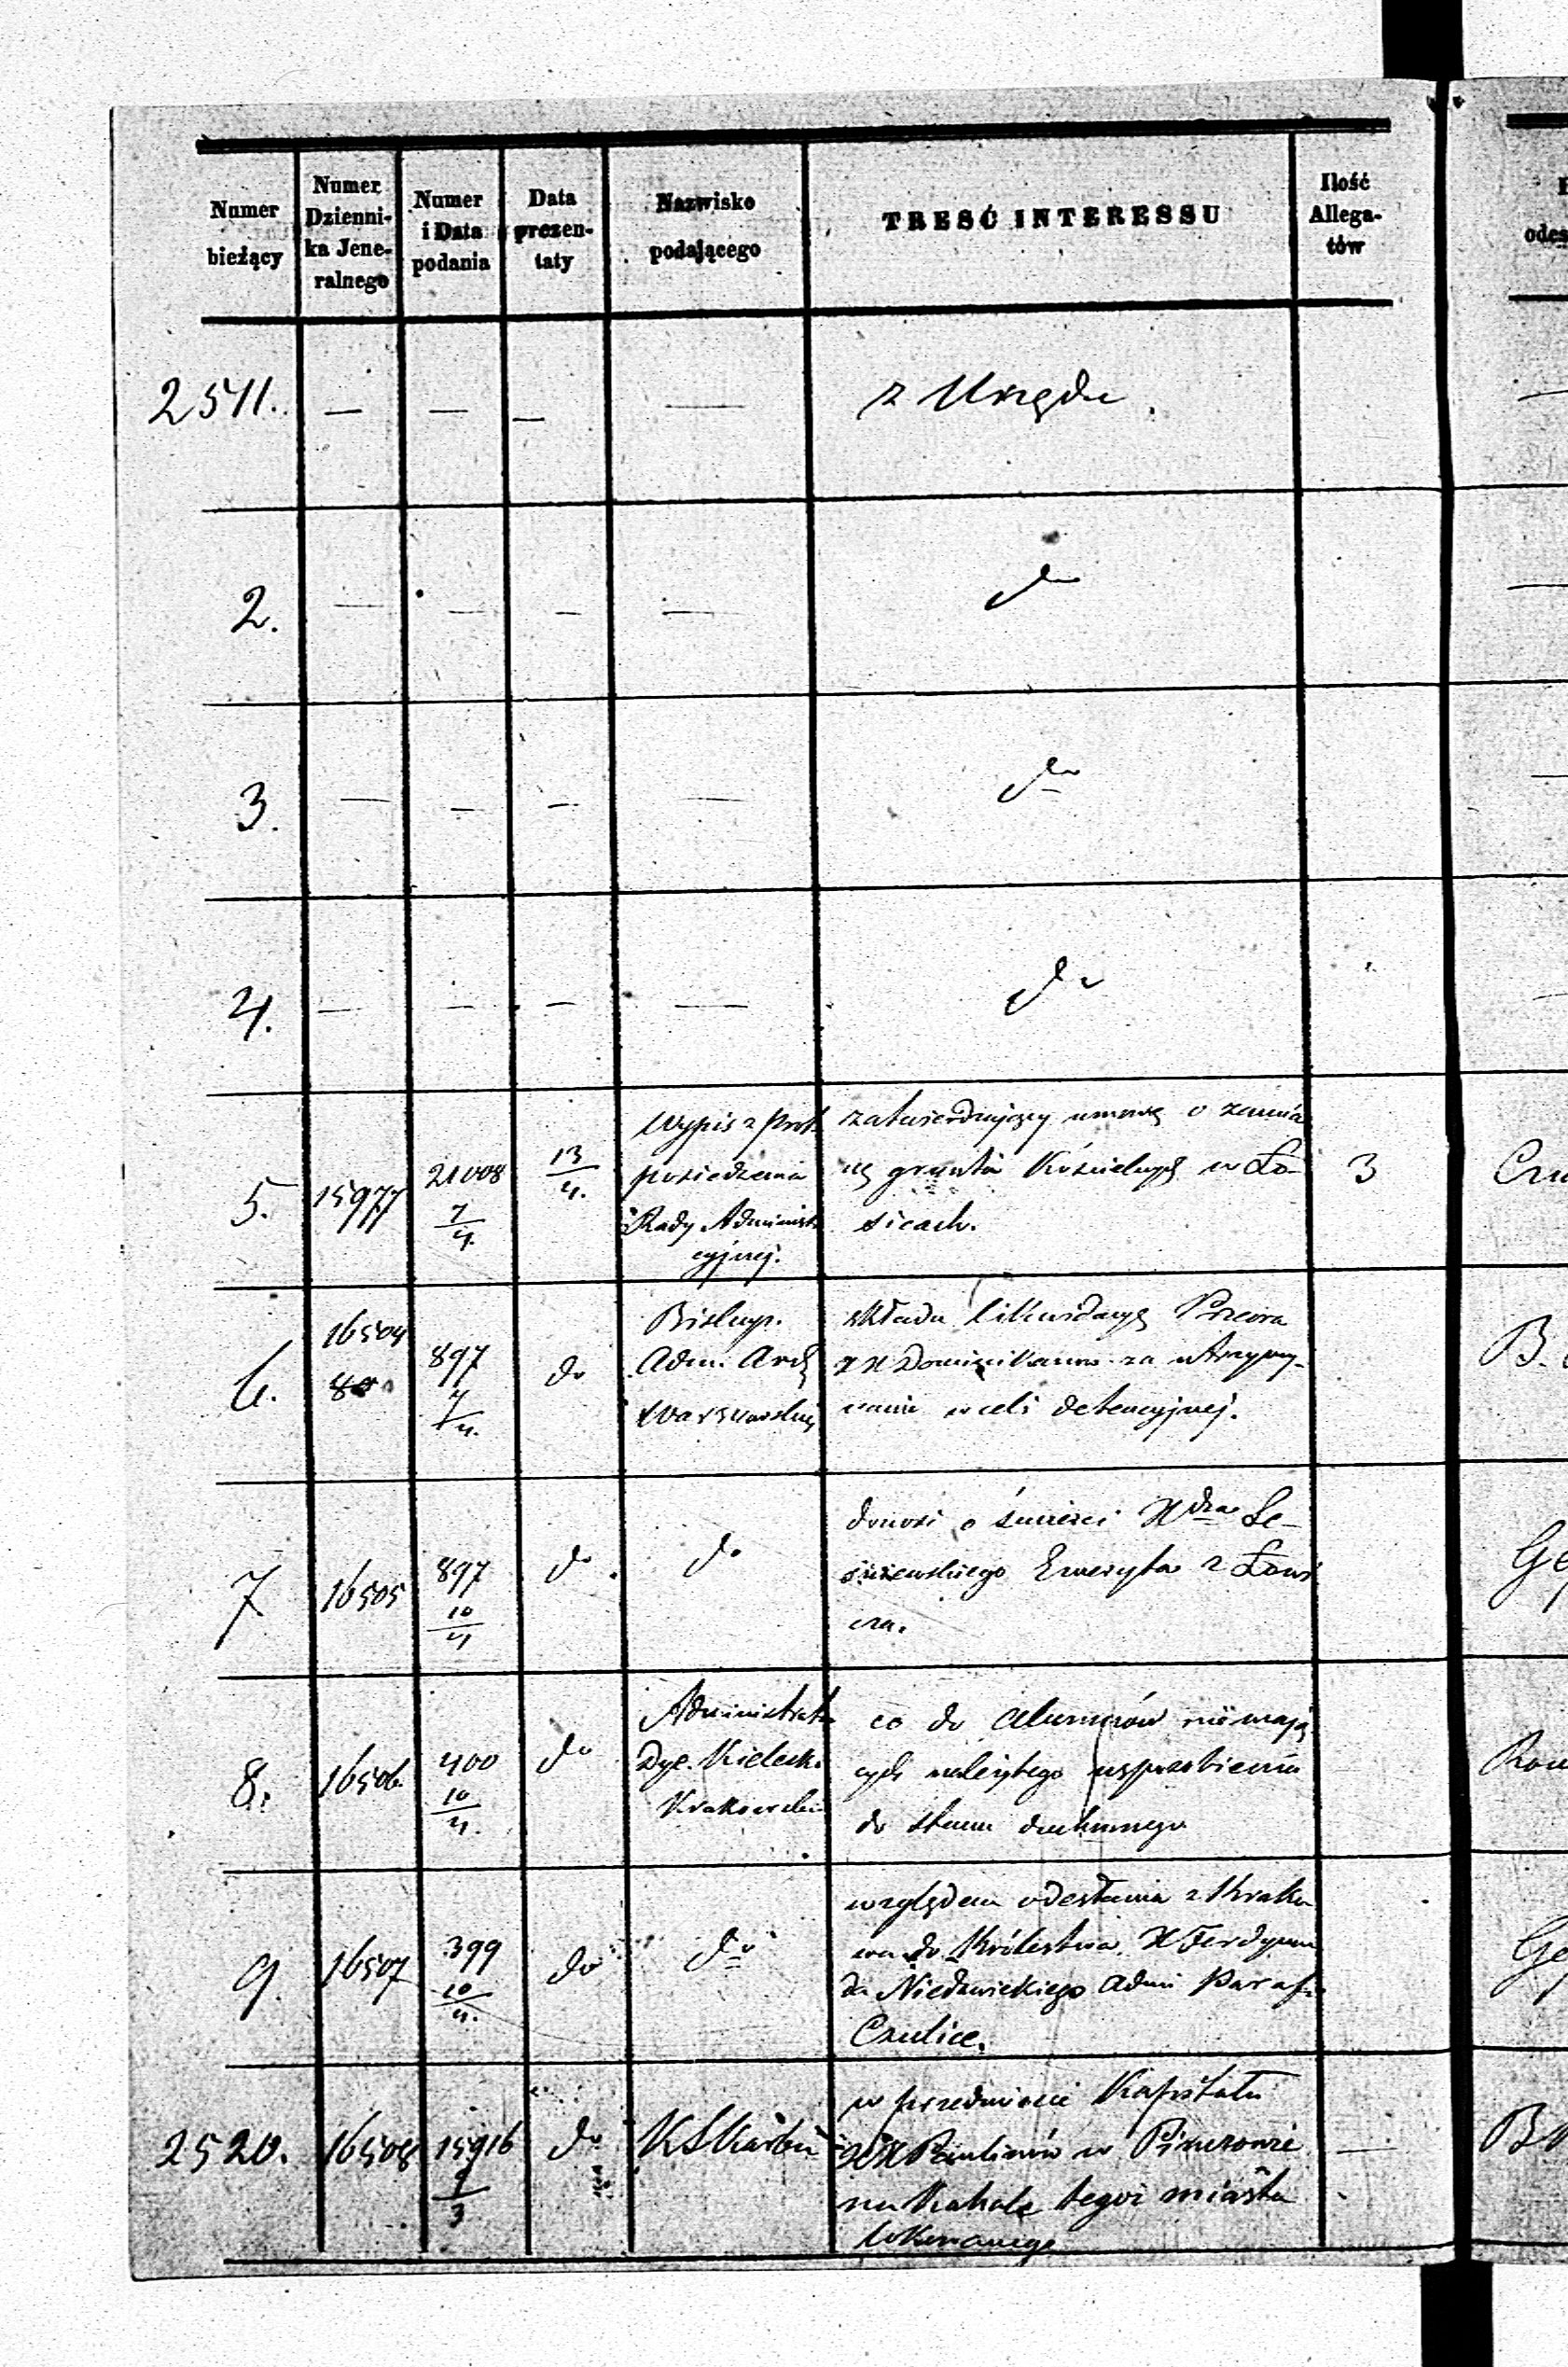 Numer bieżący
Numer Dzienni-
ka Jene-
ralnego
Numer i Data podania
Data prezen-
taty
Nazwisko podającego
TRESĆ INTERESSU
Ilość Allega-
tów
2511. — — — — z Urzędu.
2. — — — — do
3. — — — — do
4. — — — — do
5. 15977 21008 7/4. 13/4.
Wypis z Prot.
posiedzenia
Rady Administr
cyjnej.
zatwierdzający umowę o zamia
nę gruntów Kościelnych w Ło-
sicach.
3
6. 16504 897 7/4. do
Biskup.
Adm. Arch
Warszawskiej
składa likwidacyę Przeora
XX Dominikanów za utrzymy-
wanie w celi detencyjnej.
7 16505 897 10/4 do. do
donosi o śmierci Xdza Le-
śniewskiego Emeryta z Łowi
cza.
8. 16506 400 10/4. do
Administrator
Dye. Kielecko
Krakowskiej
co do Alumnów niemają
cych należytego usposobienia
do stanu duchownego
9. 16507 399 10/4. do do
względem odesłania z Krako
wa do Królestwa X Ferdynan
da Niedzwieckiego Adm Paraf.
Czulice.
2520. 16508 15916 9/3 do KSkarbu
w przedmiocie Kapitału
XX Paulinów w Pinczowie
na Kahale tegoż miasta
lokowanego
—